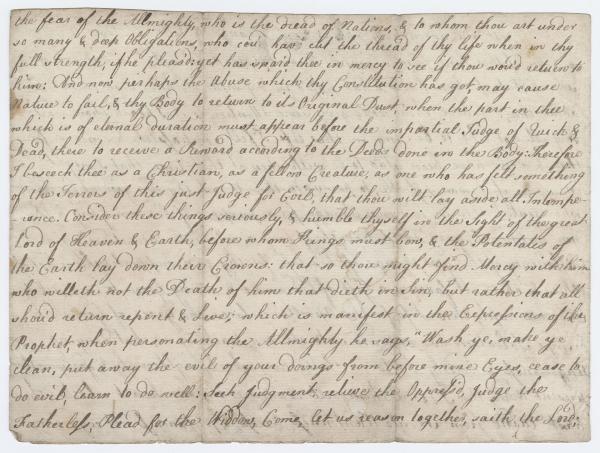 the fear of the Almighty, who is the dread of Nations, & to whom thou art under
so many & deep Obligations, who cou'd have cut the thread of thy life when in thy
full strength, if he pleas'd: yet has spar'd thee in mercy to see if thou wou'd return to
him: And now perhaps the Abuse which thy Constitution has got, may cause
Nature to fail, & thy Body to return to its Original Dust, when the part in thee
which is of eternal duration must appear before the impartial Judge of Quick &
Dead, there to receive a Reward according to the Deeds done in the Body: Therefore
I beseech thee as a Christian, as a fellow Creature, as one who has felt something
of the Terrors of this just Judge for Evil, that thou wilt lay aside all Intempe-
-rance. Consider these things seriously, & humble thyself in the sight of the great
Lord of Heaven & Earth, before whom Kings must bow, & the Potentates of
the Earth lay down their Crowns: that so thou might find Mercy with him
who willeth not the Death of him that dieth in Sin, but rather that all
shou'd return repent & live; which is manifest in the Expressions of the
Prophet, when personating the Allmighty he says, "Wash ye, make ye
clean, put away the evil of your doings from before mine Eyes, cease to
do evil, learn to do well: Seek Judgment, relieve the Oppress'd, Judge the
Fatherless, Plead for the Widdow, Come, let us reason together, saith the Lord: